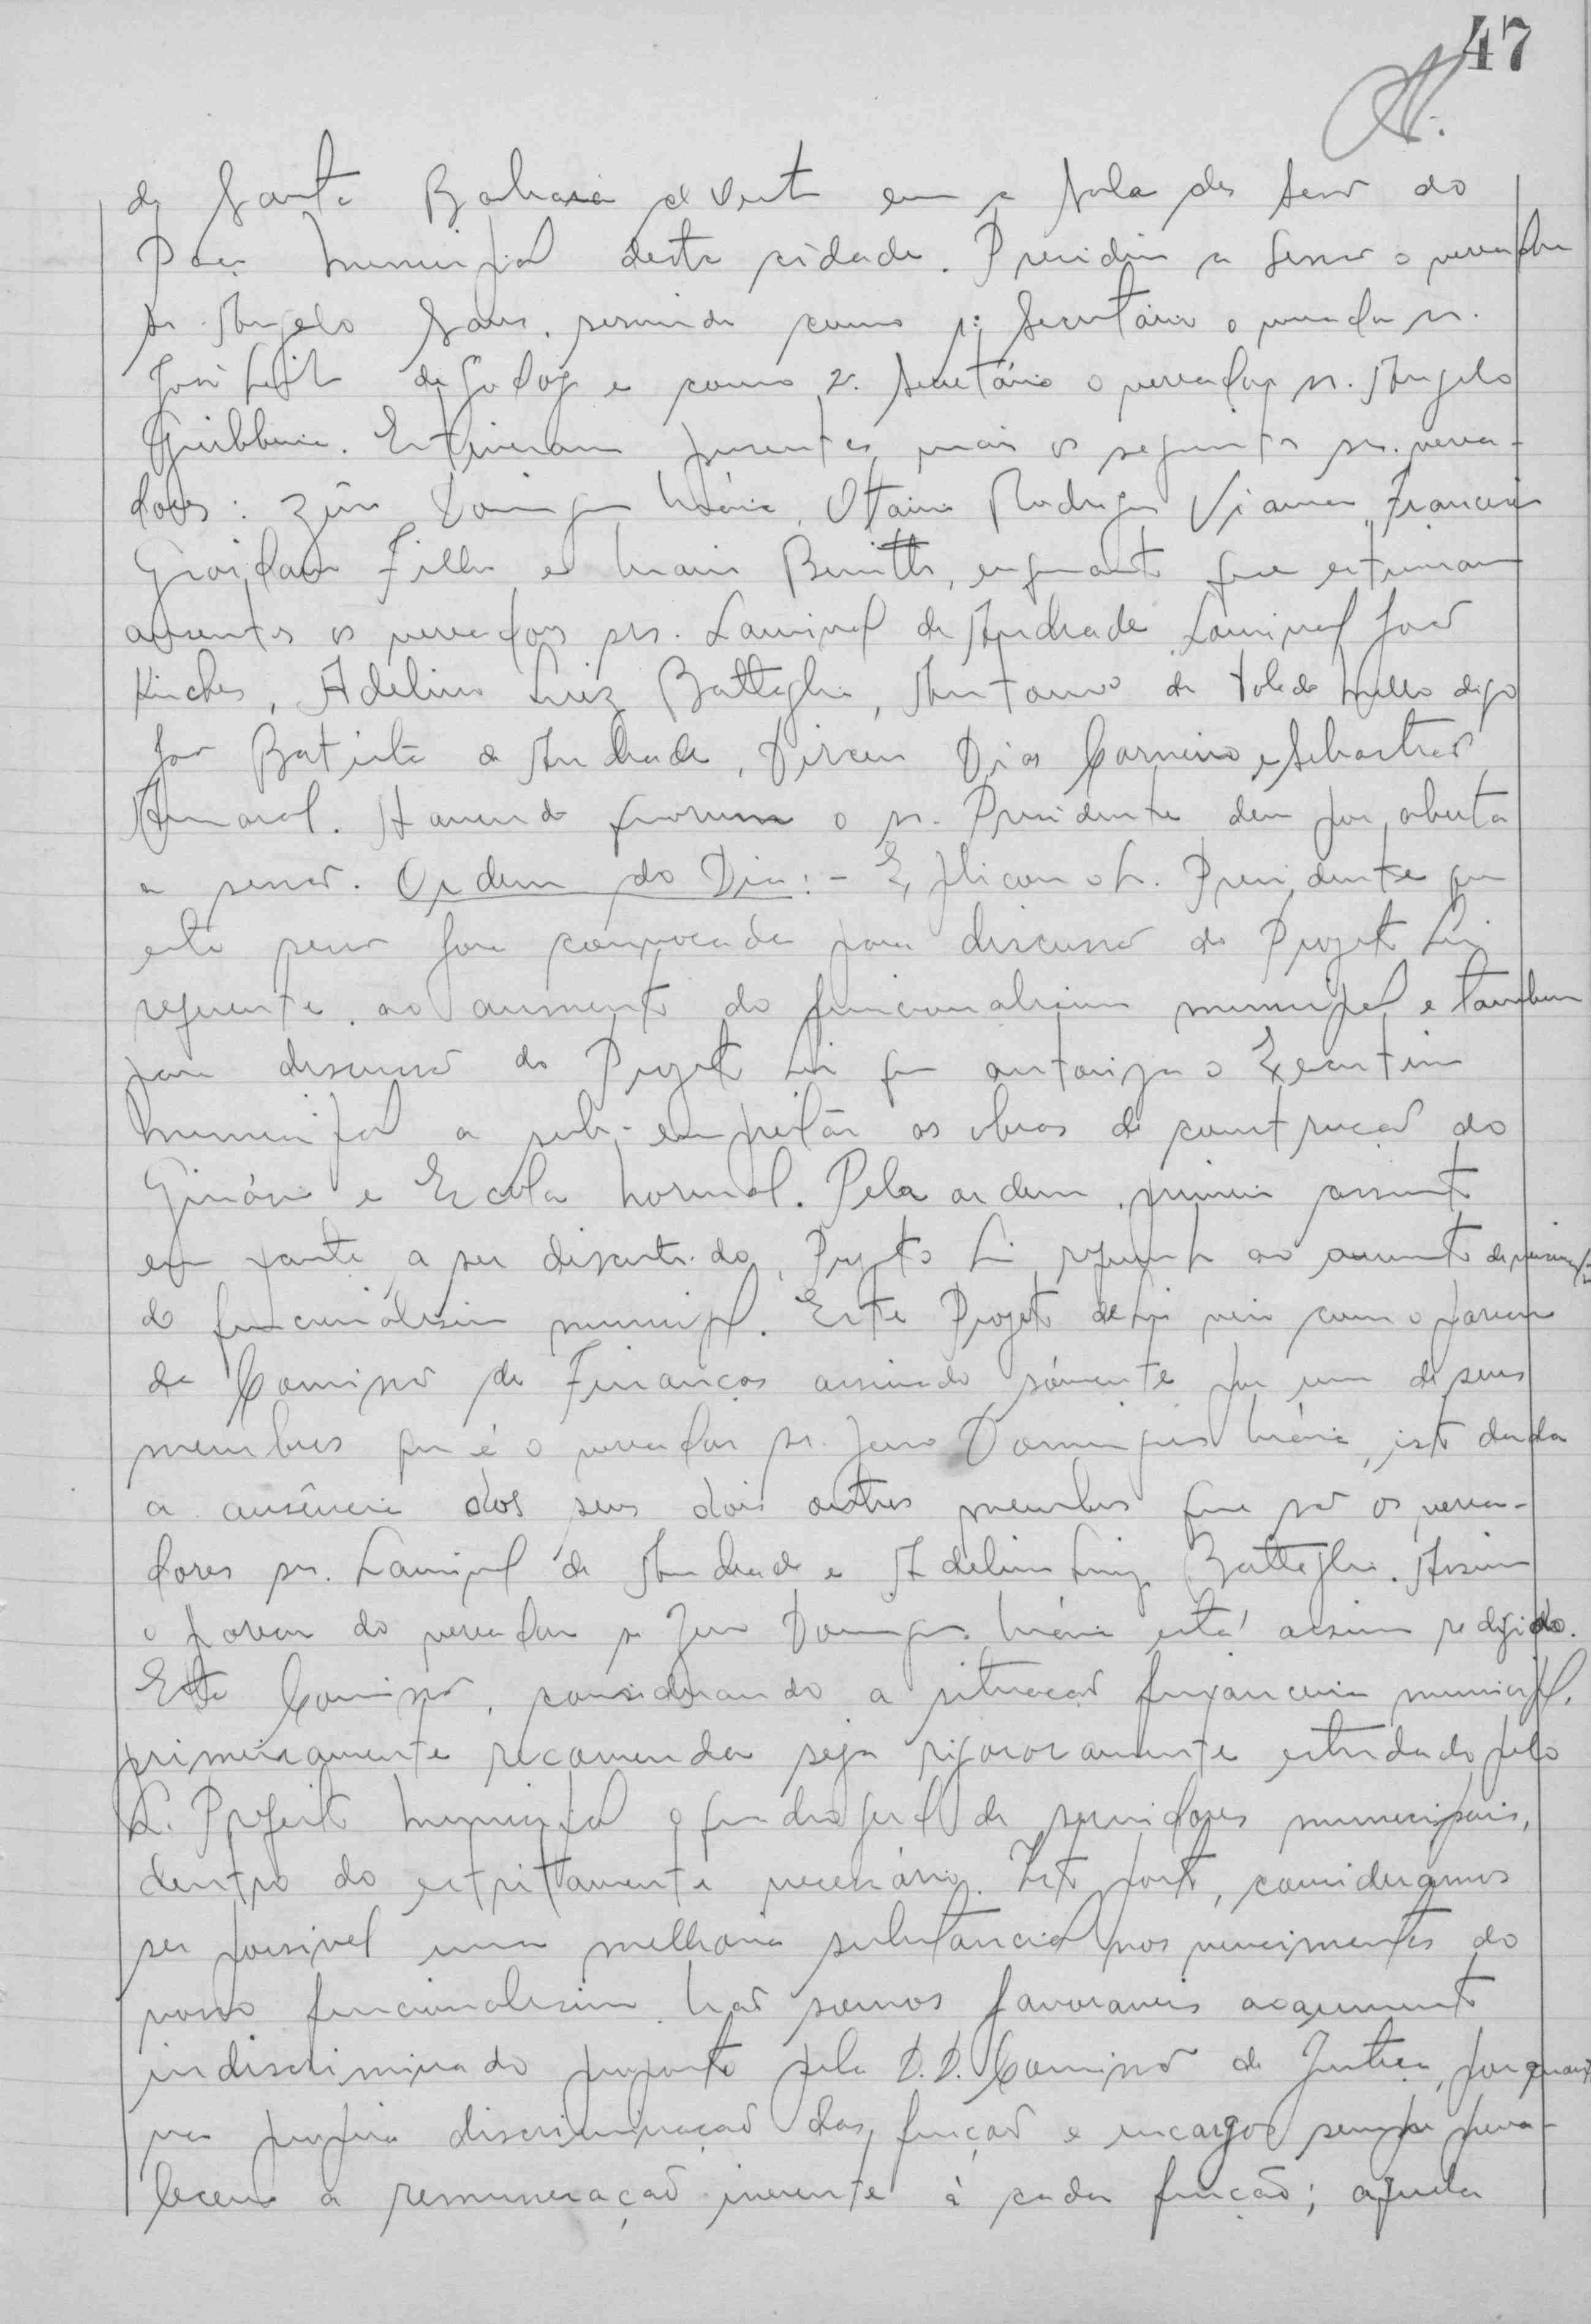 47
de Santa Barbara d'Oeste em a Sala das Sessões do
Paço Municipal desta cidade. Presidiu a sessão o vereador
sr. Angelo Sans, servindo como 1º Secretário o vereador sr.
José Leite de Godoy e como 2º Secretário o vereador sr. Angelo
Giubbina. Estiveram presentes mais os seguintes srs. verea-
dores: Zeno Domingues Maia, Otavio Rodrigues Viana, Francisco
Graidano Filho e Mario Benitto, enquanto que estiveram
ausentes os vereadores srs. Laurival de Andrade, Laurival José
, Adelino Luiz Battaglia, Antonio de Toledo Mello digo
João Batista de Andrade, Dirceu Dias Carneiro e Sebastião
Amaral. Havendo quorum o sr. Presidente deu por aberta
a sessão. Ordem do Dia:- Explicou o Sr. Presidente que
esta sessão fora convocada para discussão do Projeto Lei
referente ao aumento do funcionalismo municipal e tambem
para discussão do Projeto Lei que autoriza o Executivo
Municipal a sub-empreitar as obras de construção do
Ginásio e Escola Normal. Pela ordem, primeiro assunto
em pauta a ser discutido, Projeto Lei referente ao aumento de vencimentos
do funcionalismo municipal. Este Projeto de Lei veio com o parecer
da Comissão de Finanças assinado sómente por um de seus
membros que é o vereador sr. Zeno Domingues Maia, isto dada
a ausência dos seus dois outros membros que são os verea-
dores srs. Laurival de Andrade e Adelino Luiz Battaglia. Assim
o parecer do vereador sr Zeno Domingues Maia está assim redigido.
Esta Comissão, considerando a situação financeira municipal,
primeiramente recomenda seja rigorosamente estudado pelo
Sr. Prefeito Municipal o quadro geral de servidores municipais,
dentro do estritamente necessário. Isto posto, consideramos
ser possivel uma melhoria substancial nos vencimentos do
nosso funcionalismo. Não somos favoraveis ao aumento
indiscriminado proposto pela D.D. Comissão de Justiça, porquanto
na propria discriminação das função e encargos sempre preva-
leceu a remuneração inerente à cada função; aquela